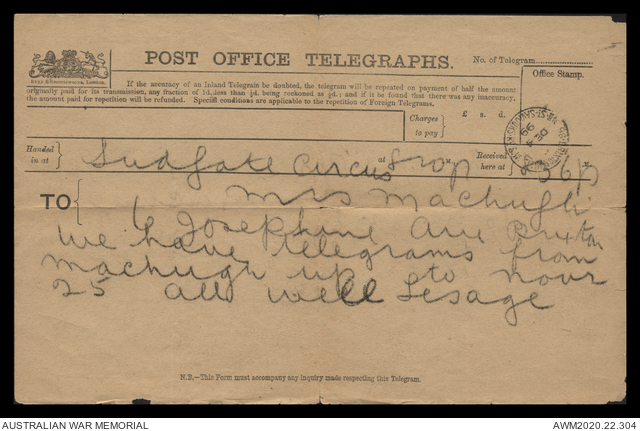 POST OFFICE TELEGRAPHS.
No. of Telegram
If the accuracy of an Inland Telegram be doubted, the telegram will be repeated on payment of half the amount
originally paid for its transmission, any fraction of 1d. less than ½d. being reckoned as ½d.; and if it be found that there was any inaccuracy,
the amount paid for repetition will be refunded. Special conditions are applicable to the repetition of Foreign Telegrams.
Office Stamp.
Charges to pay
£ s. d.
Handed in at
Ludgate Circus
at
M.
Received here at
M.
TO
Mrs Machugh
6 Josephine Ave Brixton
We have telegrams from
Machugh up to Novr
25 all well Lesage
N.B.—This Form must accompany any inquiry made respecting this Telegram.
AUSTRALIAN WAR MEMORIAL
AWM2020.22.304